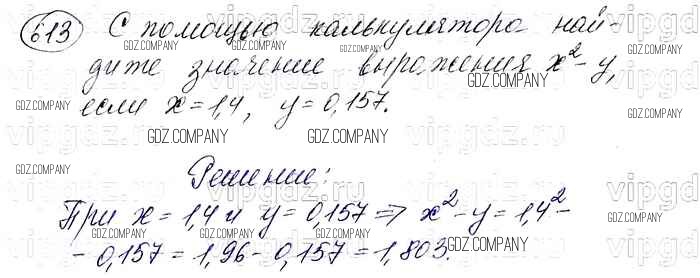 613 С помощью калькулятора най-
дите значение выражения x² - y,
если x = 1,4, y = 0,157.
Решение:
При x = 1,4 и y = 0,157 => x² - y = 1,4² -
- 0,157 = 1,96 - 0,157 = 1,803.
GDZ.COMPANY
vipgdz.ru